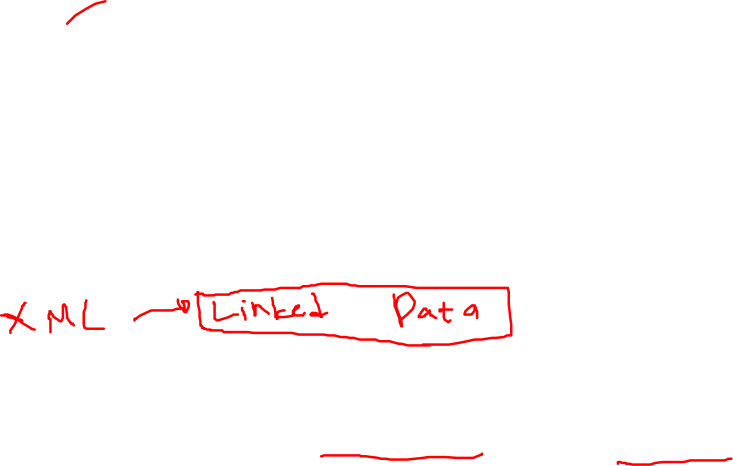 XML → Linked Data